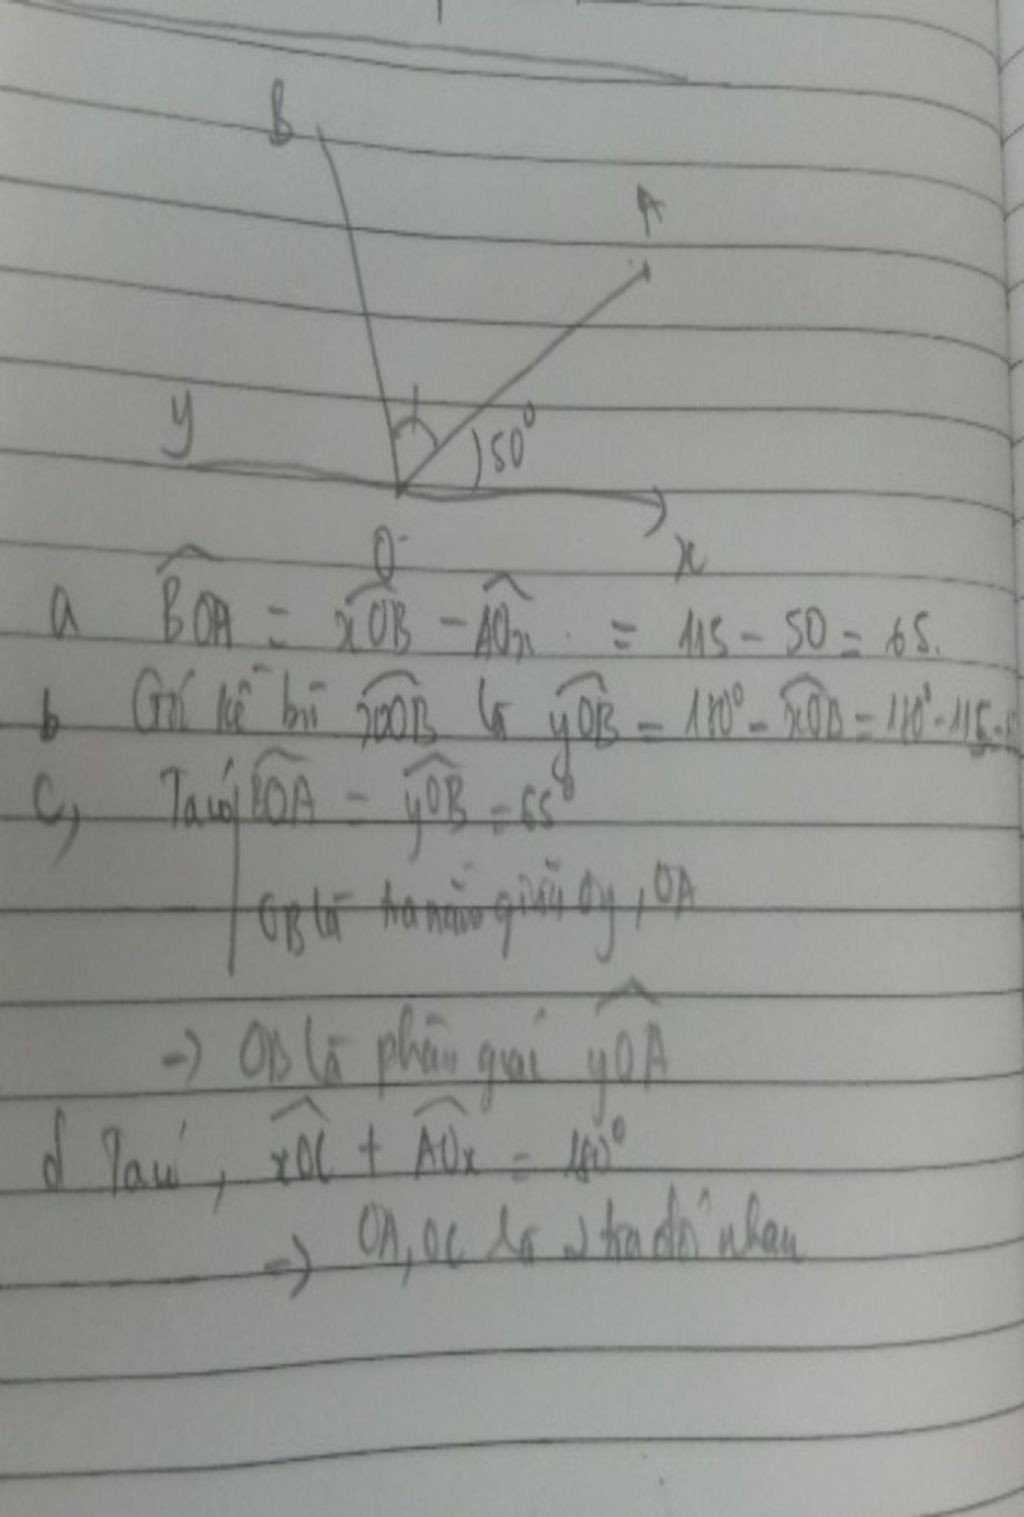 B
A
y
50⁰
O
x
a BOA = xOB - AOx = 115 - 50 = 65.
b Góc kề bù xOB là yOB = 180⁰ - xOB = 180⁰ - 115 =
c, Ta có BOA = yOB = 65⁰
OB là tia nằm giữa Oy, OA
→ OB là phân giác yOA
d Ta có, xOC + AOx = 180⁰
→ OA, OC là 2 tia đối nhau